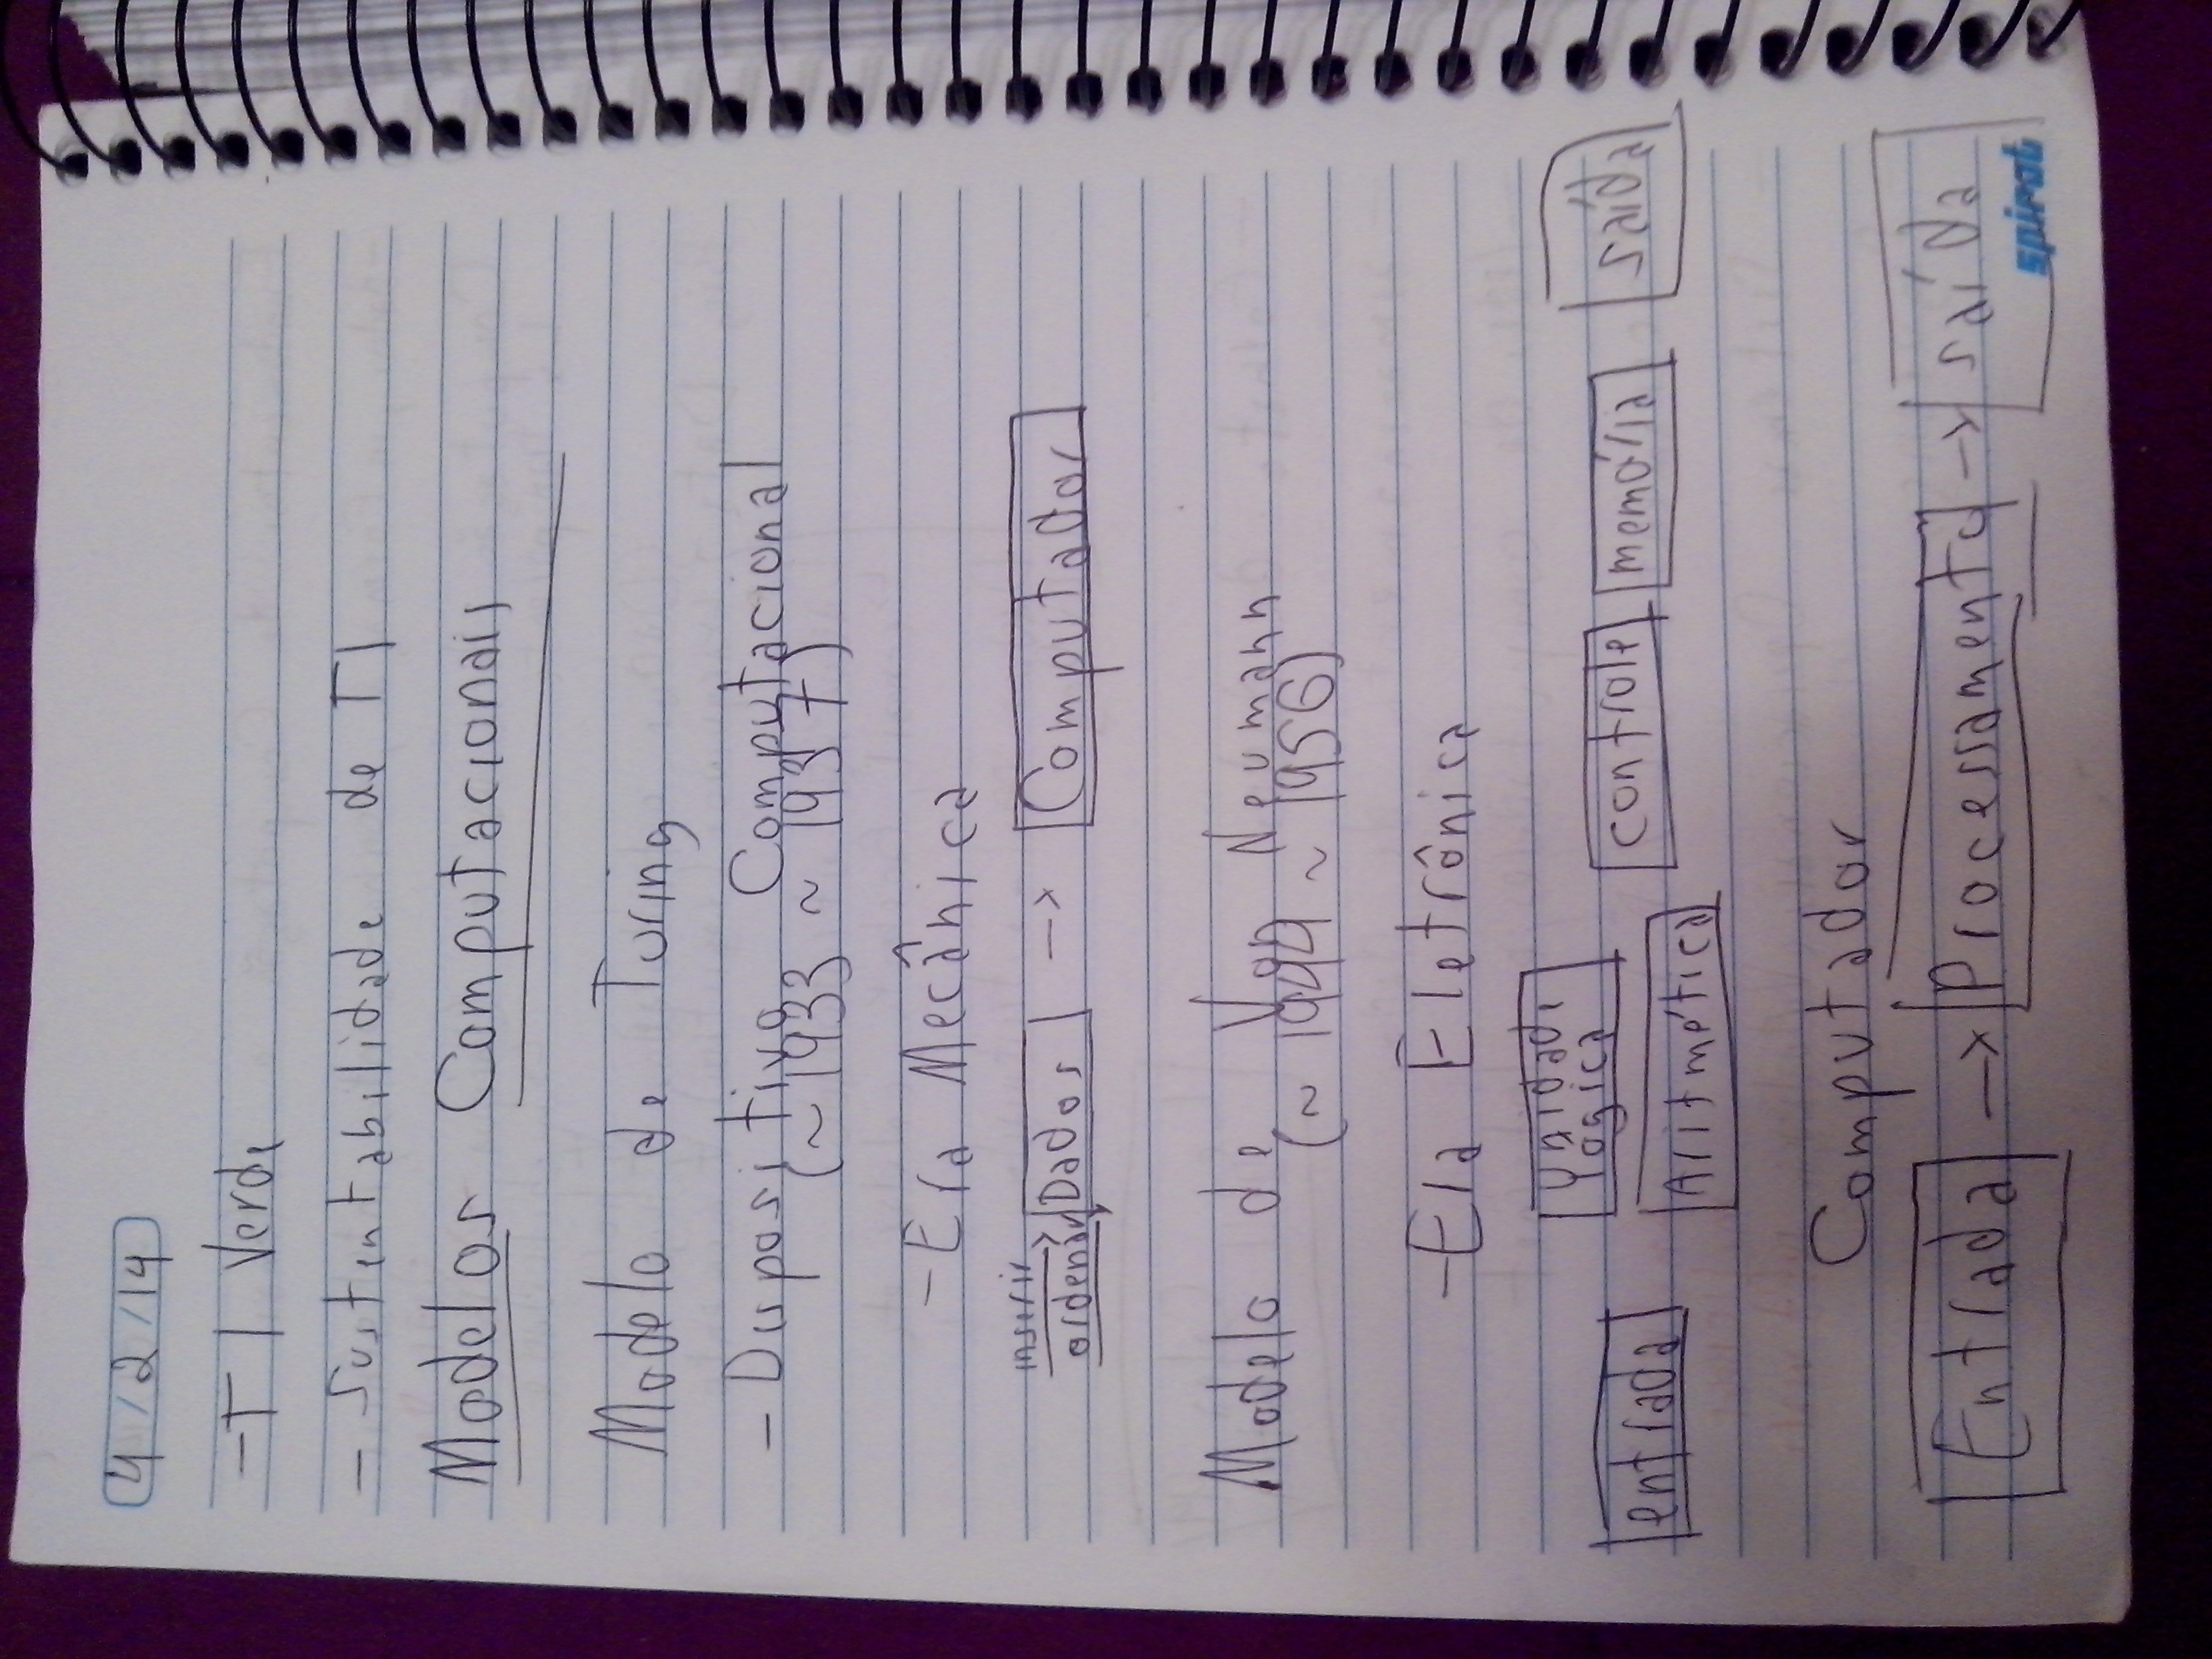 4/2/14
- TI Verde
- Sustentabilidade de TI
Modelos Computacionais
Modelo de Turing
- Dispositivo Computacional
(~1933 ~ 1937)
- Era Mecânica
inserir
ordenar Dados -> Computador
Modelo de Von Neumann
(~ 1944 ~ 1956)
- Era Eletrônica
Unidade
lógica
entrada controle memória saída
Aritmética
Computador
Entrada -> Processamento -> saída
spiral